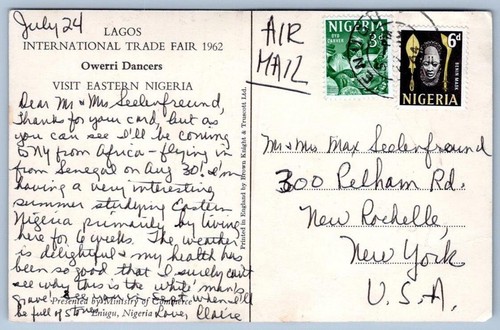 July 24
LAGOS
INTERNATIONAL TRADE FAIR 1962
Owerri Dancers
VISIT EASTERN NIGERIA
Dear Mr & Mrs Seelenfreund,
Thanks for your card, but as
you can see I'll be coming
to NY from Africa - flying in
from Senegal on Aug 30. I'm
having a very interesting
summer studying Eastern
Nigeria primarily by living
here for 6 weeks. The weather
is delightful & my health has
been so good that I surely can't
see why this is the white man's
grave. See you in Sept when I'll
be full of stories
Love, Claire
Presented by Ministry of Commerce
Enugu, Nigeria
Printed in England by Brown Knight & Truscott Ltd.
AIR
MAIL
NIGERIA
3d
6d
BENIN MASK
NIGERIA
Mr & Mrs Max Seelenfreund
300 Pelham Rd.
New Rochelle,
New York
U.S.A.